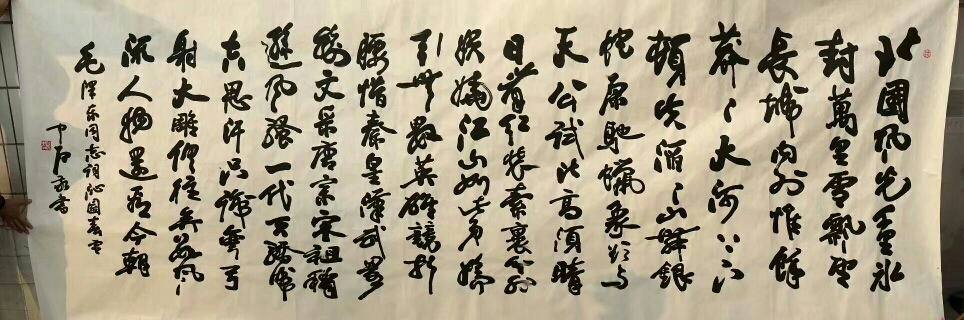 北國風光千里冰
封萬里雪飄望
長城内外惟餘
莽〻大河上下
頓失滔〻山舞銀
蛇原馳蠟象欲与
天公試比高須晴
日看紅裝素裹分外
妖嬈江山如此多嬌
引無數英雄競折
腰惜秦皇漢武略
輸文采唐宗宋祖稍
遜風騷一代天驕成
吉思汗只識彎弓
射大雕俱往矣數風
流人物還看今朝
毛澤东同志詞沁園春雪
中石書